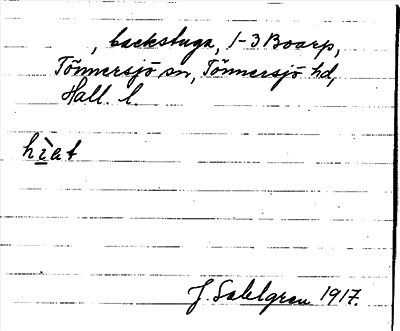 , backstuga, 1-3 Boarp,
Tönnersjö sn, Tönnersjö hd,
Hall. l
hìat
J. Sahlgren 1917.